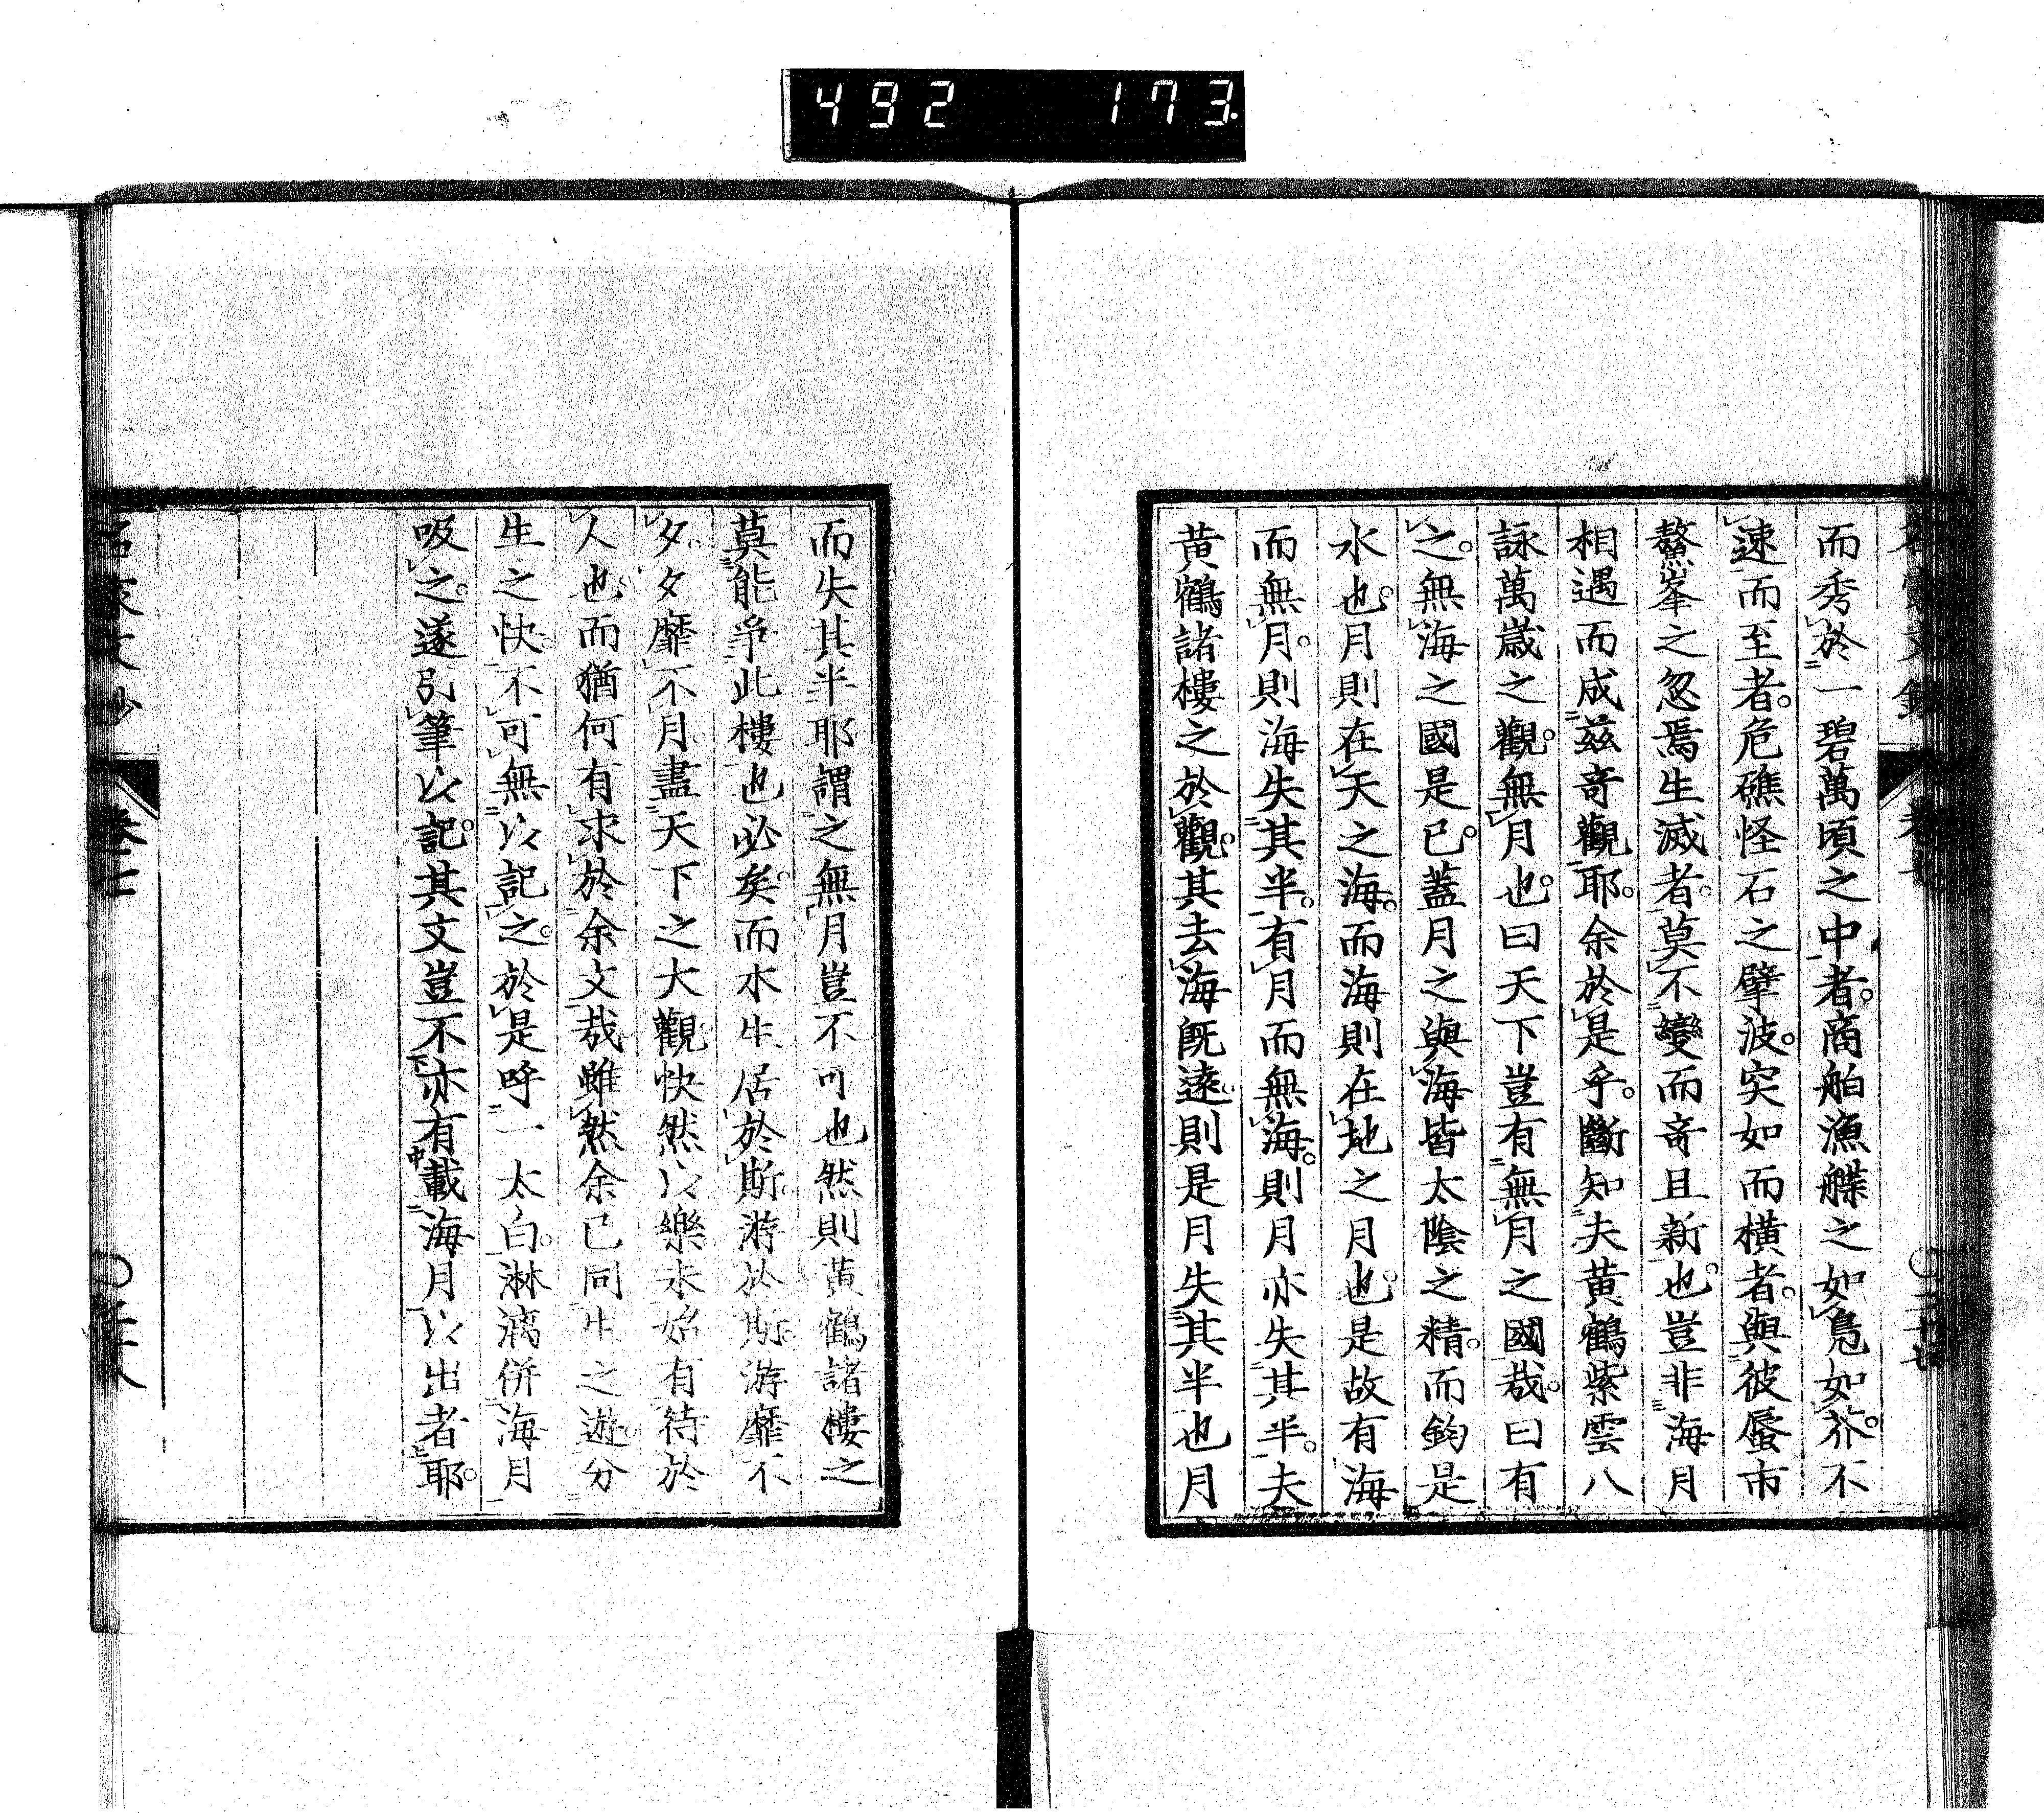 492 173.
而秀於一碧萬頃之中者。商舶漁艓之如鳧如芥。不
速而至者。危礁怪石之擘波。突如而橫者。與彼蜃市
鰲峯之忽焉生滅者。莫不變而竒且新也。豈非海月
相遇而成茲竒觀耶。余於是乎。斷知夫黄鶴紫雲八
詠萬歲之觀。無月也。曰天下豈有無月之國哉。曰有
之。無海之國是已。蓋月之與海皆太陰之精。而鈞是
水也。月則在天之海。而海則在地之月也。是故有海
而無月。則海失其半。有月而無海。則月亦失其半。夫
黄鶴諸樓之於觀。其去海既遠。則是月失其半也月
而失其半耶謂之無月豈不可也然則黄鶴諸樓之
莫能爭此樓也必矣。而水生居於斯游於斯游靡不
夕。夕靡不月。盡天下之大觀快然以樂未始有待於
人也。而猶何有求於余文哉。雖然余已同生之遊。分
生之快。不可無以記之。於是呼一太白。淋漓併海月
吸之。遂引筆以記。其文豈不亦有載海月以出者耶。
名家文抄 卷七